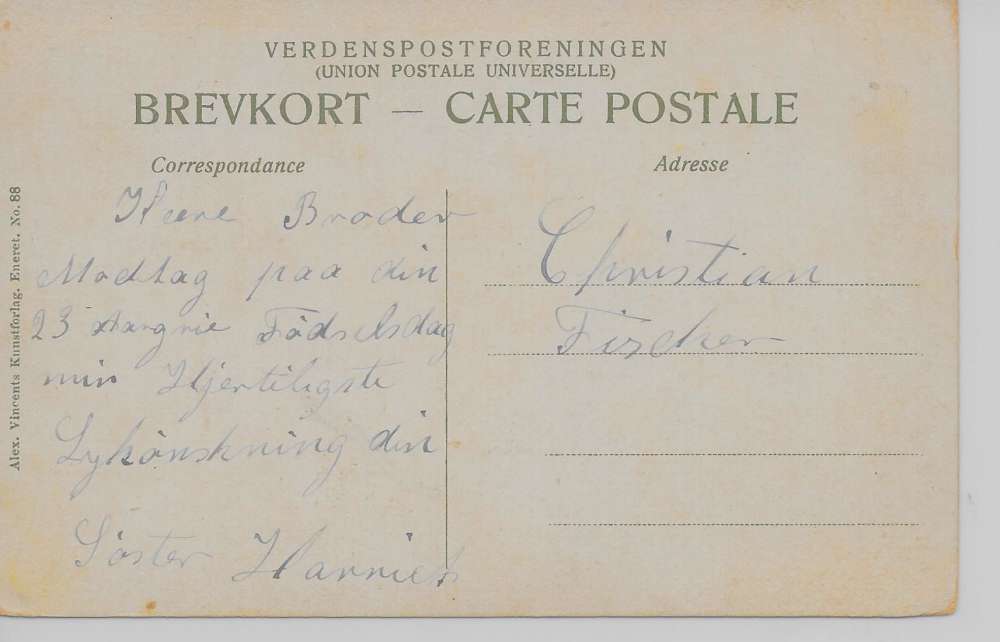 VERDENSPOSTFORENINGEN
(UNION POSTALE UNIVERSELLE)
BREVKORT — CARTE POSTALE
Correspondance
Kære Broder
Modtag paa din
23 Aargnie Födselsdag
min Hjertiligste
Lykönskning din
Söster Harriet
Adresse
Christian
Fischer
Alex. Vincents Kunstforlag. Eneret. No. 88